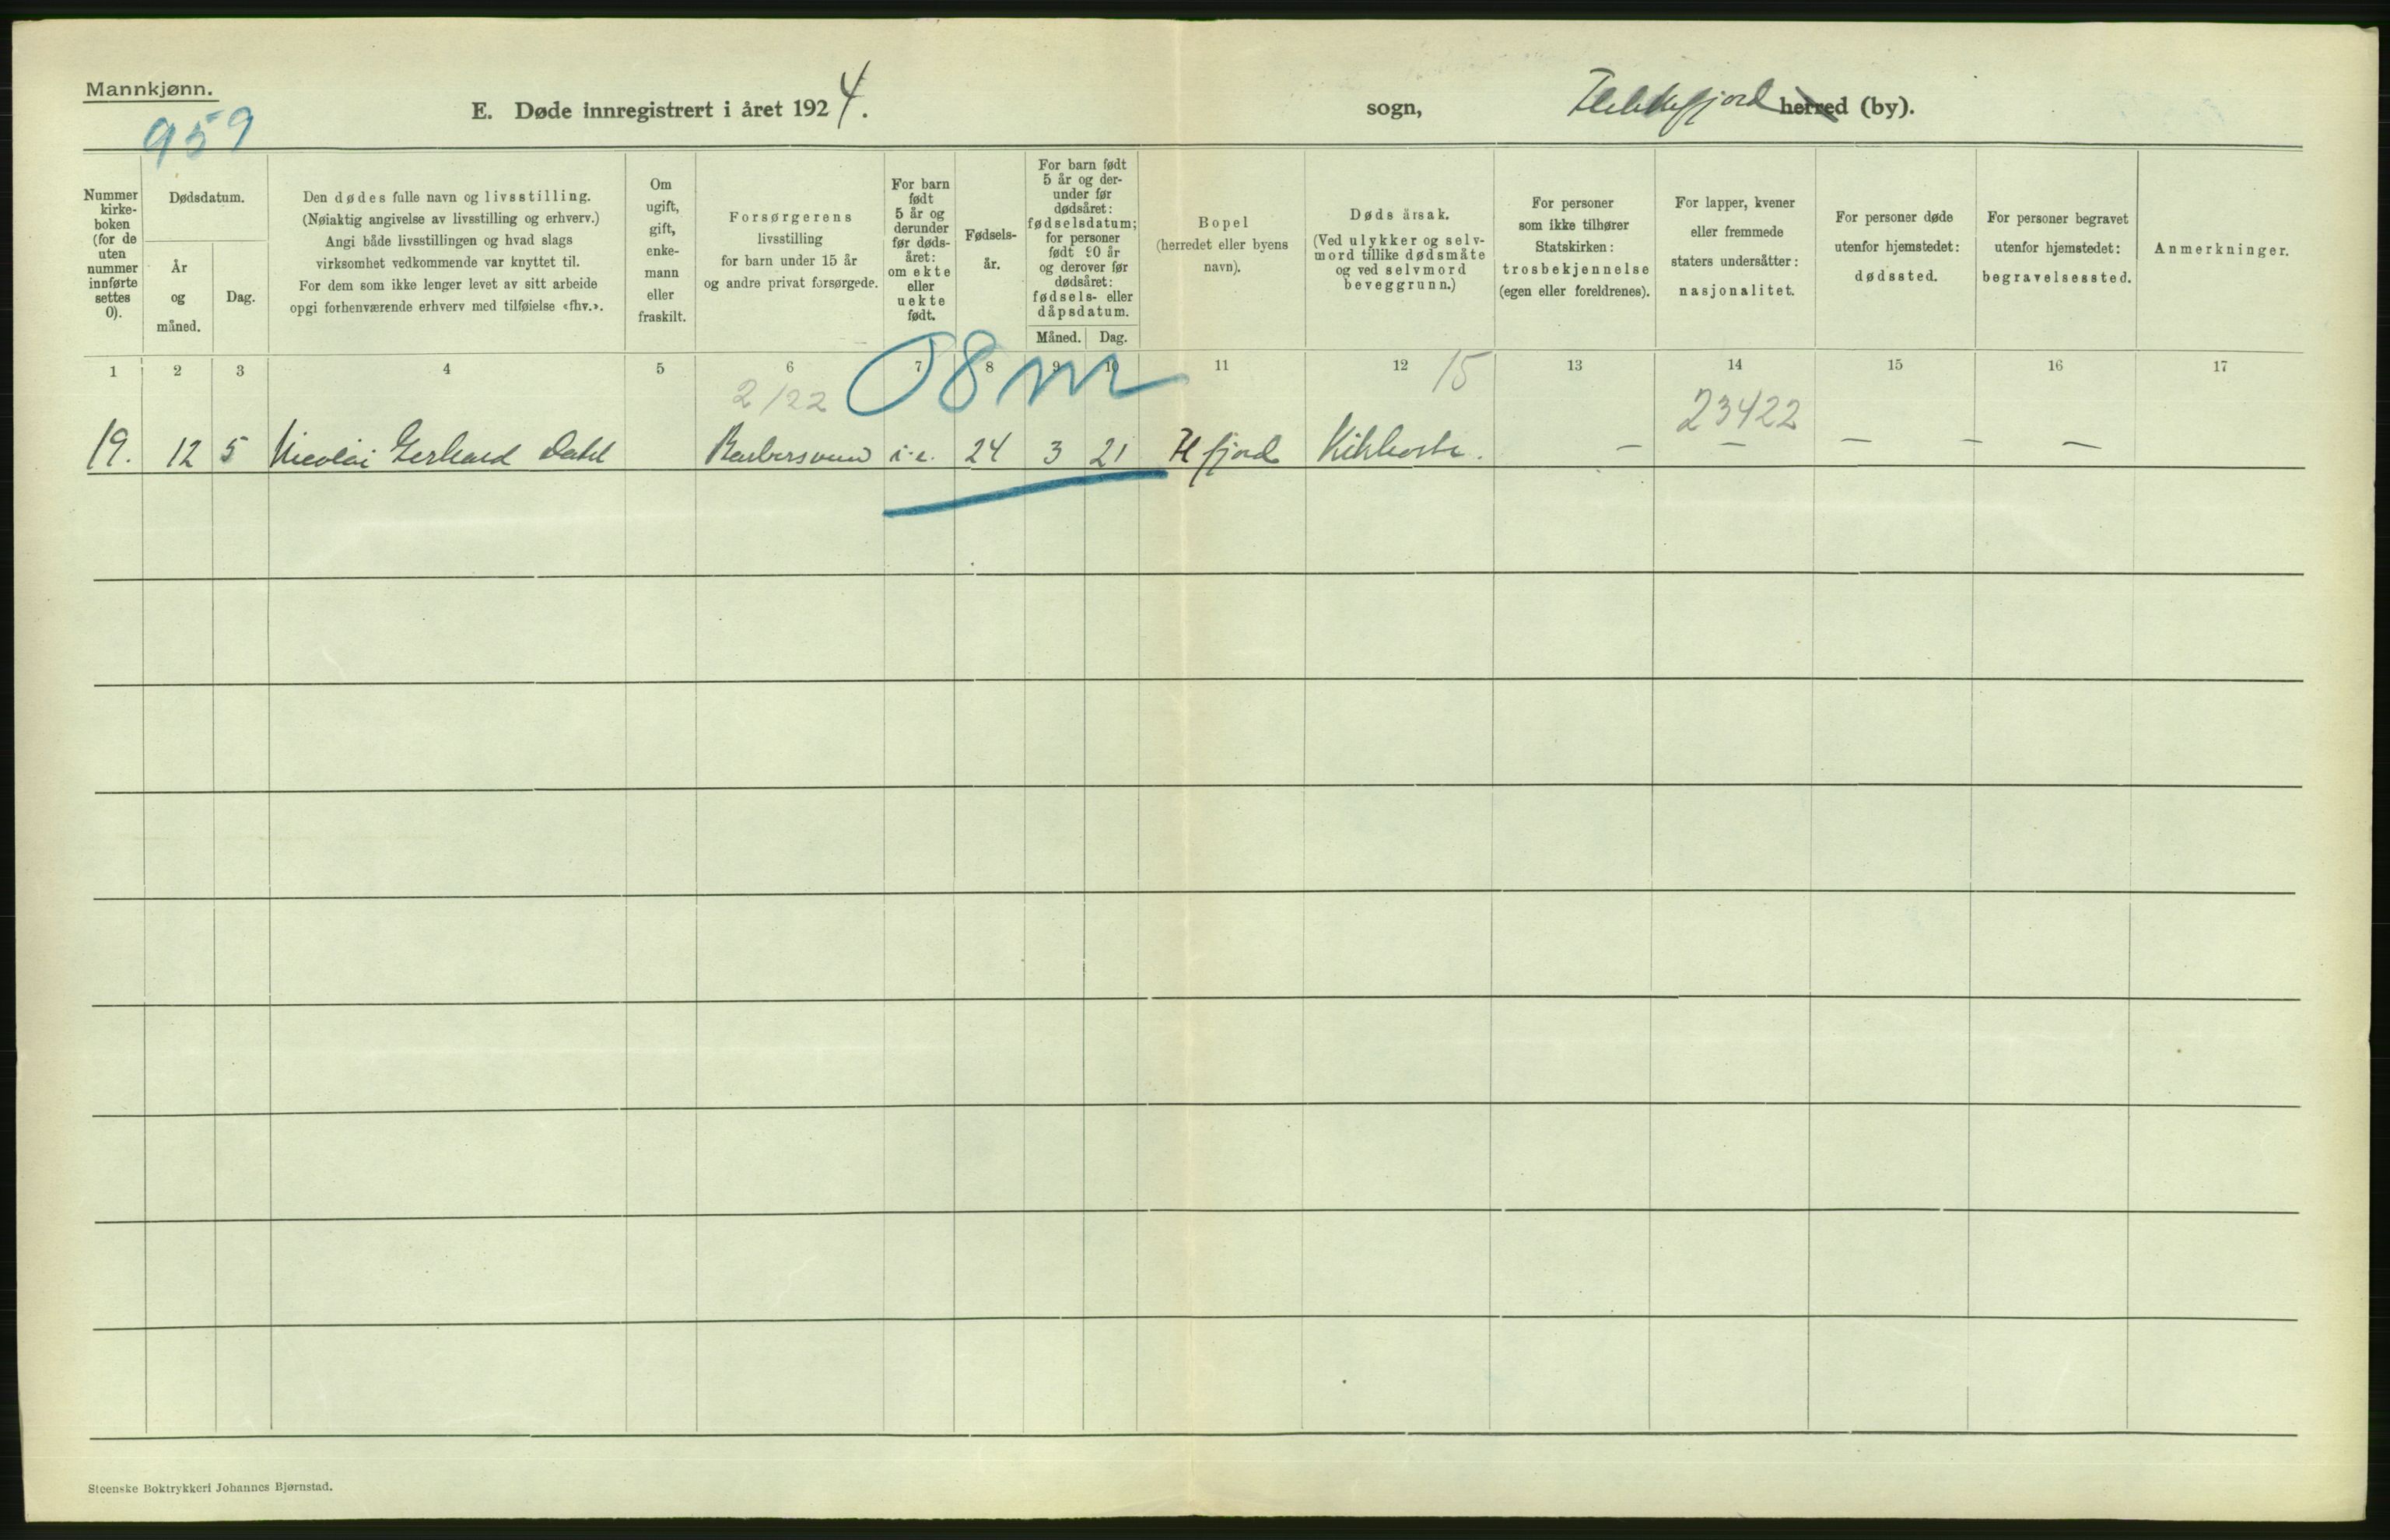 Mannkjønn.
959
E. Døde innregistrert i året 1924.
sogn,
Flekkefjord herred (by).
Nummer
kirke-
boken
(for de
uten
nummer
innførte
settes
0).
Dødsdatum.
År
og
måned.
Dag.
Den dødes fulle navn og livsstilling.
(Nøiaktig angivelse av livsstilling og erhverv.)
Angi både livsstillingen og hvad slags
virksomhet vedkommende var knyttet til.
For dem som ikke lenger levet av sitt arbeide
opgi forhenværende erhverv med tilføielse «fhv.».
Om
ugift,
gift,
enke-
mann
eller
fraskilt.
Forsørgerens
livsstilling
for barn under 15 år
og andre privat forsørgede.
For barn
født
5 år og
derunder
før døds-
året:
om ekte
eller
uekte
født.
Fødsels-
år.
For barn født
5 år og der-
under før
dødsåret:
fødselsdatum;
for personer
født 20 år
og derover før
dødsåret:
fødsels- eller
dåpsdatum.
Måned. Dag.
Bopel
(herredet eller byens
navn).
Dødsårsak.
(Ved ulykker og selv-
mord tillike dødsmåte
og ved selvmord
beveggrunn.)
For personer
som ikke tilhører
Statskirken:
trosbekjennelse
(egen eller foreldrenes).
For lapper, kvener
eller fremmede
staters undersåtter:
nasjonalitet.
For personer døde
utenfor hjemstedet:
dødssted.
For personer begravet
utenfor hjemstedet:
begravelsessted.
Anmerkninger.
1 2 3 4 5 6 7 8 9 10 11 12 13 14 15 16 17
2/22 08m 15 23422
19. 12 5 Nicolai Gerhard Dahl i.e. 24 3 21 fjord Kikhoste. — — — — —
Steenske Boktrykkeri Johannes Bjørnstad.